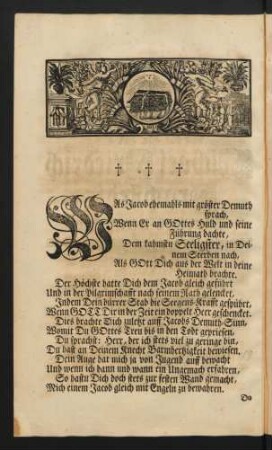 † † †
WAs Jacob ehemahls mit gröster Demuth
sprach,
Wenn Er an GOttes Huld und seine
Führung dachte,
Dem kahmstu Seeligster, in Dei-
nem Sterben nach,
Als GOtt Dich aus der Welt in deine
Heimath brachte.
Der Höchste hatte Dich dem Jacob gleich geführt
Und in der Pilgrimschafft nach seinem Rath geleitet,
Indem Dein dürrer Stab die Seegens-Krafft gespühret,
Wenn GOTT Dir in der Zeit ein doppelt Heer geschencket.
Dies brachte Dich zuletzt auff Jacobs Demuth-Sinn,
Womit Du GOttes Treu bis in den Todt gepriesen.
Du sprachst: Herr, der ich stets viel zu geringe bin,
Du hast an Deinem Knecht Barmhertzigkeit bewiesen,
Dein Auge hat mich ja von Jugend auff bewacht
Und wenn ich dann und wann ein Ungemach erfahren,
So hastu Dich doch stets zur festen Wand gemacht,
Mich einem Jacob gleich mit Engeln zu bewahren.
Du